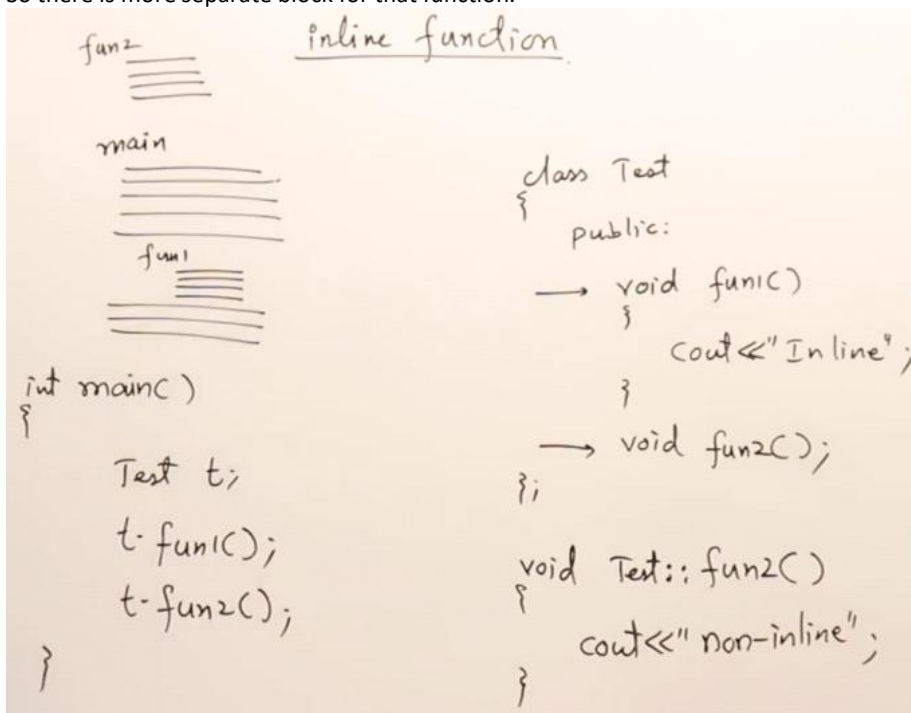 So there is more separate block for that function.
inline function
fun2
main
fun1
int main()
{
Test t;
t.fun1();
t.fun2();
}
class Test
{
public:
→ void fun1()
{
cout<<"Inline";
}
→ void fun2();
};
void Test::fun2()
{
cout<<"non-inline";
}